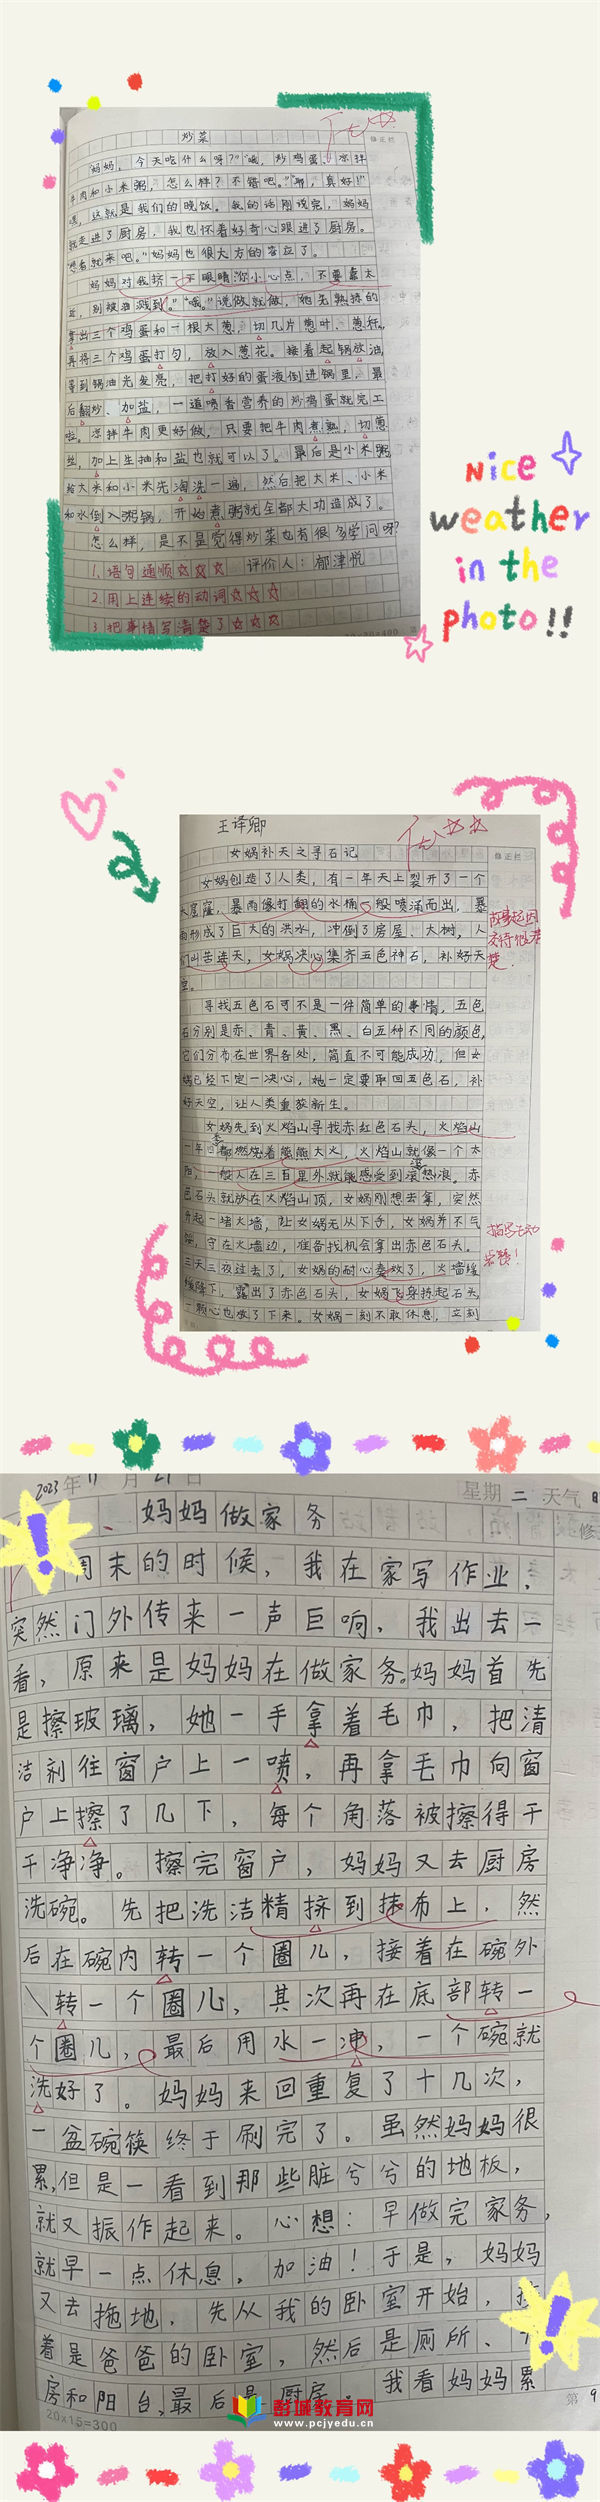 炒菜
修正栏
"妈妈，今天吃什么呀？""哦，炒鸡蛋、凉拌
牛肉和小米粥，怎么样？不错吧。""耶，真好！"
嘿，这就是我们的晚饭。我的话刚说完，妈妈
就走进了厨房，我也怀着好奇心跟进了厨房。
"想看就来吧。"妈妈也很大方的答应了。
妈妈对我挤一下眼睛"你小心点，不要靠太
近，别被油溅到。""哦。"说做就做，她先熟练的
拿出三个鸡蛋和一根大葱，切几片葱叶、葱杆，
再将三个鸡蛋打匀，放入葱花。接着起锅放油，
等到锅油光发亮，把打好的蛋液倒进锅里，最
后翻炒、加盐，一道喷香营养的炒鸡蛋就完工
啦。凉拌牛肉更好做，只要把牛肉煮熟，切葱
丝，加上生抽和盐也就可以了。最后是小米粥
给大米和小米先淘洗一遍，然后把大米、小米
和水倒入粥锅，开始煮粥就全都大功造成了。
怎么样，是不是觉得炒菜也有很多学问呀？
1.语句通顺☆☆☆ 评价人：郁津悦
2.用上连续的动词☆☆☆
3.把事情写清楚了☆☆☆
20×20=400
Nice
weather
in the
photo!!
王译卿
女娲补天之寻石记
修正栏
女娲创造了人类，有一年天上裂开了一个
大窟窿，暴雨像打翻的水桶一般喷涌而出，暴
雨形成了巨大的洪水，冲倒了房屋、大树，人
们叫苦连天，女娲决心集齐五色神石，补好天
空。
故事起因
交待很清
楚！
寻找五色石可不是一件简单的事情，五色
石分别是赤、青、黄、黑、白五种不同的颜色，
它们分布在世界各处，简直不可能成功，但女
娲已经下定一决心，她一定要取回五色石，补
好天空，让人类重获新生。
女娲先到火焰山寻找赤红色石头，火焰山
一年四季都燃烧着熊熊大火，火焰山就像一个太
阳，一般人在三百里外就能感受到滚滚热浪。赤
色石头就放在火焰山顶，女娲刚想去拿，突然
升起一堵火墙，让女娲无从下手，女娲并不气
馁，守在火墙边，准备找机会拿出赤色石头。
三天三夜过去了，女娲的耐心奏效了，火墙缓
缓降下，露出了赤色石头，女娲飞身捞起石头，
一颗心也放了下来。女娲一刻不敢休息，立刻
描写生动
2023年11月21日 星期二 天气
妈妈做家务
周末的时候，我在家写作业，
突然门外传来一声巨响，我出去一
看，原来是妈妈在做家务。妈妈首先
是擦玻璃，她一手拿着毛巾，把清
洁剂往窗户上一喷，再拿毛巾向窗
户上擦了几下，每个角落被擦得干
干净净。擦完窗户，妈妈又去厨房
洗碗。先把洗洁精挤到抹布上，然
后在碗内转一个圈儿，接着在碗外
转一个圈儿，其次再在底部转一
个圈儿，最后用水一冲，一个碗就
洗好了。妈妈来回重复了十几次，
一盆碗筷终于刷完了。虽然妈妈很
累，但是一看到那些脏兮兮的地板，
就又振作起来。心想：早做完家务，
就早一点休息，加油！于是，妈妈
又去拖地，先从我的卧室开始，接
着是爸爸的卧室，然后是厕所、
房和阳台，最后是厨房。我看妈妈累
20×15=300
第 9
彭城教育网
www.pcjyedu.cn